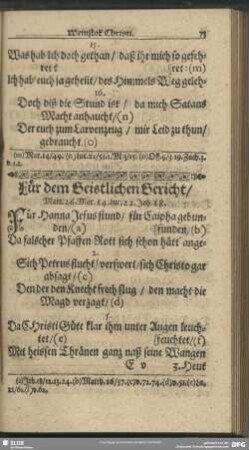 Weinstock Christi. 75
15.
Was hab ich doch gethan/ daß ihr mich so gefeh-
ret? (ret:(m)
Ich hab' euch ja gelehrt, des Himmels Weg
16.
Doch diß die Stund ist/ da mich Satans
Macht anhaucht/(n)
Der euch zum Larvenzeug/ mit Leid zu thun/
gebraucht (o)
Für dem Geistlichen Gericht/
Matt. 26. Mar. 14. Luc. 22. Joh. 18.
Für Hanna Jesus stund/ für Caipha gebun-
den/(a) (funden/(b)
Da falscher Pfaffen Rott sich schon hätt' ange-
2.
Sich Petrus flucht/ verswert/ sich Christo gar
absagt/(c)
Den der den Knecht frech slug/ den macht die
Magd verzagt/(d)
3.
Da Christi Güte klar ihm unter Augen leuch-
tet/(e) (feuchtet/(f)
Mit heissen Thränen ganz naß seine Wangen
E v 3. Heut
SLUB
DRESDEN
DFG